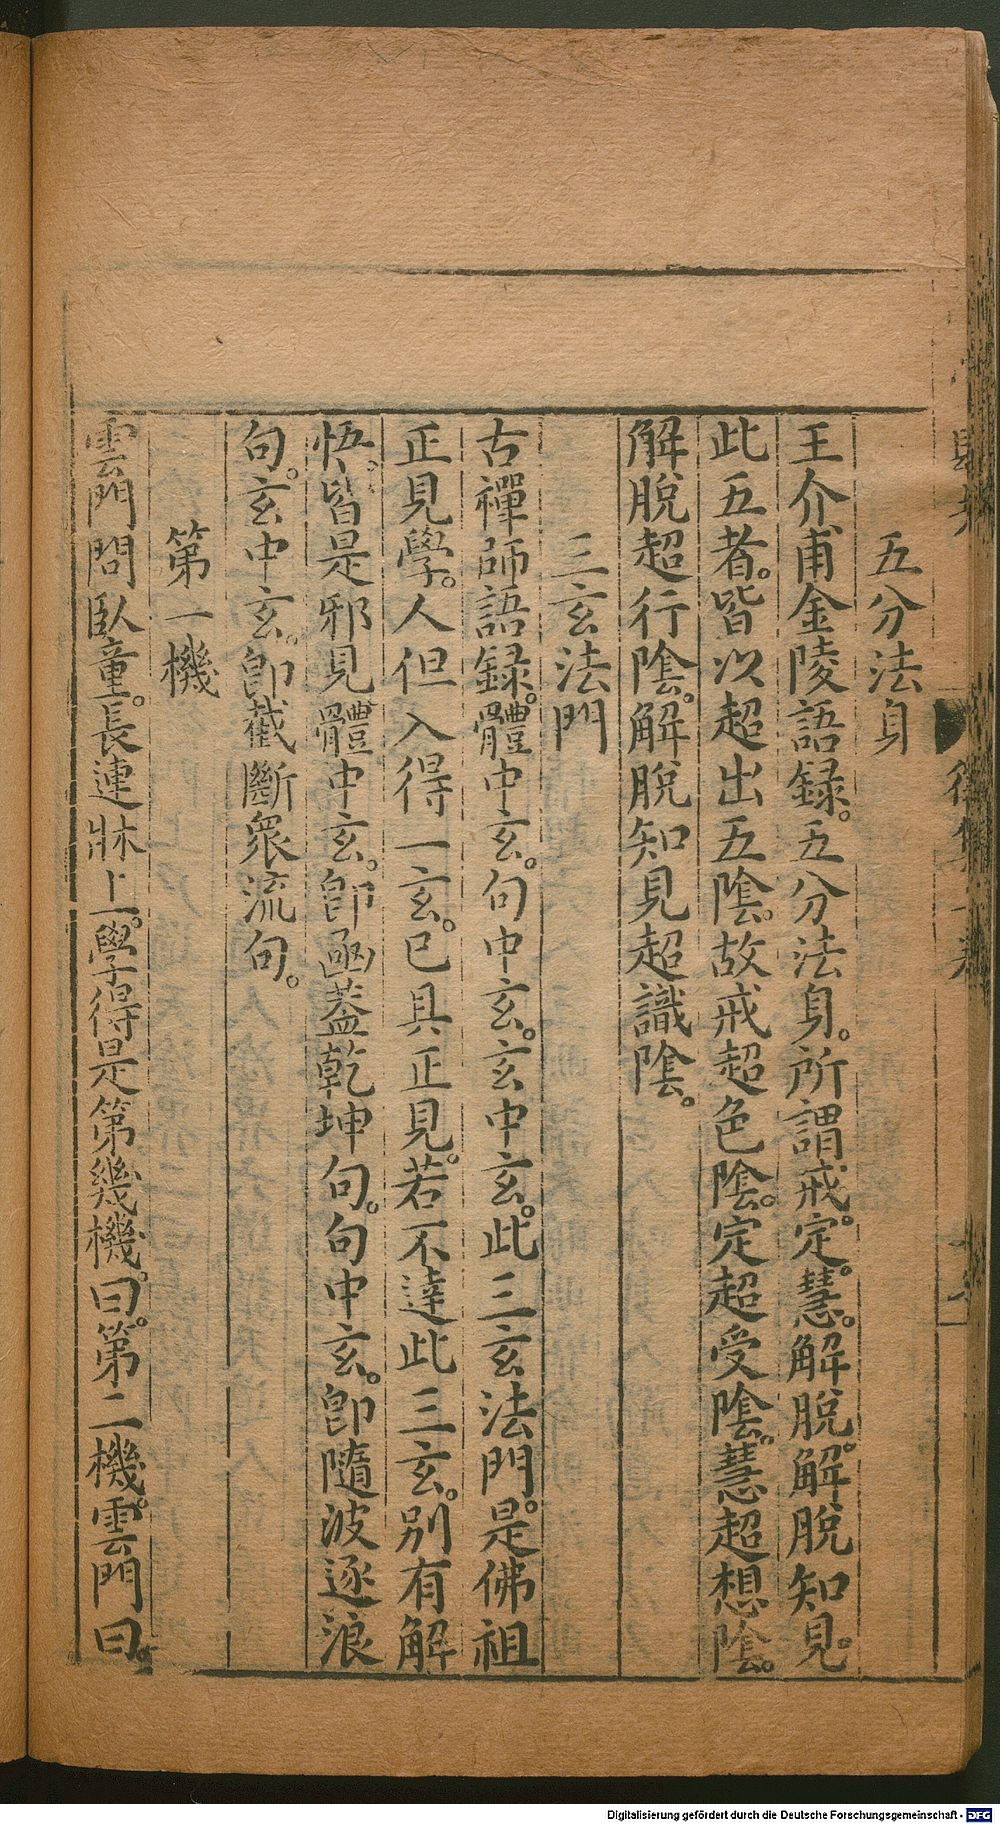 五分法身
王介甫金陵語録。五分法身。所謂戒。定。慧。解脫。解脫知見。
此五者。皆以超出五陰。故戒超色陰。定超受陰。慧超想陰。
解脫超行陰。解脫知見超識陰。
三玄法門
古禪師語録。體中玄。句中玄。玄中玄。此三玄法門。是佛祖
正見學。人但入得一玄。已具正見。若不達此三玄。別有解
悟。皆是邪見體中玄。卽函蓋乾坤句。句中玄。卽隨波逐浪
句。玄中玄。卽截斷衆流句。
第一機
雲門問臥童。長連牀上。學得是第幾機。曰。第二機。雲門曰。
Digitalisierung gefördert durch die Deutsche Forschungsgemeinschaft - DFG